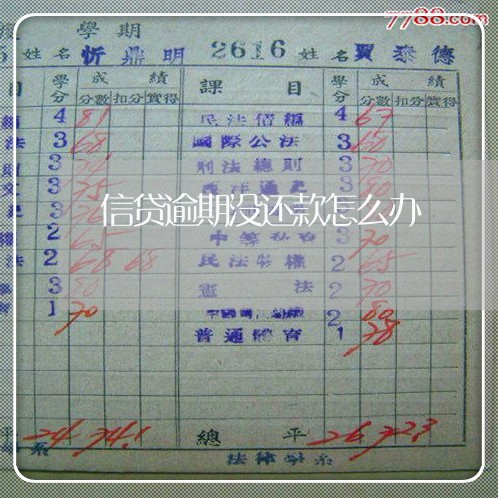 7788.com
學期
姓名 忻鼎明 2616 姓名 賈泰德
目 學分 成績 課目 學分 成績
分數 扣分 實得 分數 扣分 實得
4 81 民法債編 4 67
法 3 68 國際公法 3 60
3 刑法總則 3 70
文 3 75 西洋通史 3 80
3
信贷逾期没还款怎么办
權 2 65 3 70
法 2 68 68 民法物權 2 65
3 80 憲法 2 70
1 70 2 80
普通體育 1 78
平 24 74.1 總平 26 72.3
系 法律學系